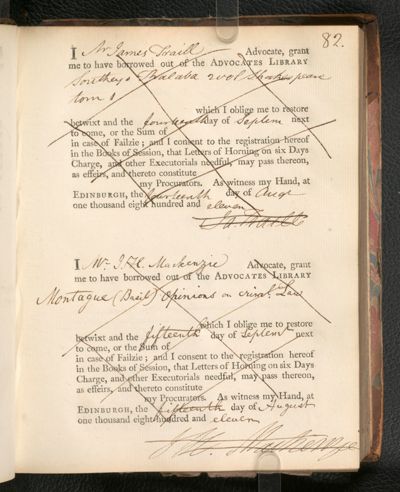 82.
I Mr James Traill Advocate, grant
me to have borrowed out of the ADVOCATES LIBRARY
Southey's 2 vol Shakespeare
tom 1
which I oblige me to restore
betwixt and the fourteenth day of Septem next
to come, or the Sum of
in case of Failzie; and I consent to the registration hereof
in the Books of Session, that Letters of Horning on six Days
Charge, and other Executorials needful, may pass thereon,
as effeirs, and thereto constitute
my Procurators. As witness my Hand, at
EDINBURGH, the fourteenth day of Augt
one thousand eight hundred and eleven
Ja Traill
I Mr J. H. Mackenzie Advocate, grant
me to have borrowed out of the ADVOCATES LIBRARY
Montague (Basil) Opinions on criml. Law
which I oblige me to restore
betwixt and the fifteenth day of Septemr next
to come, or the Sum of
in case of Failzie; and I consent to the registration hereof
in the Books of Session, that Letters of Horning on six Days
Charge, and other Executorials needful, may pass thereon,
as effeirs, and thereto constitute
my Procurators. As witness my Hand, at
EDINBURGH, the fifteenth day of August
one thousand eight hundred and eleven
J. H. Mackenzie